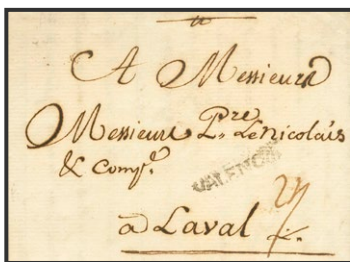 a
A Messieurs
Messieurs P.re LeNicolais
& Comp.e
VALENCE
à Laval